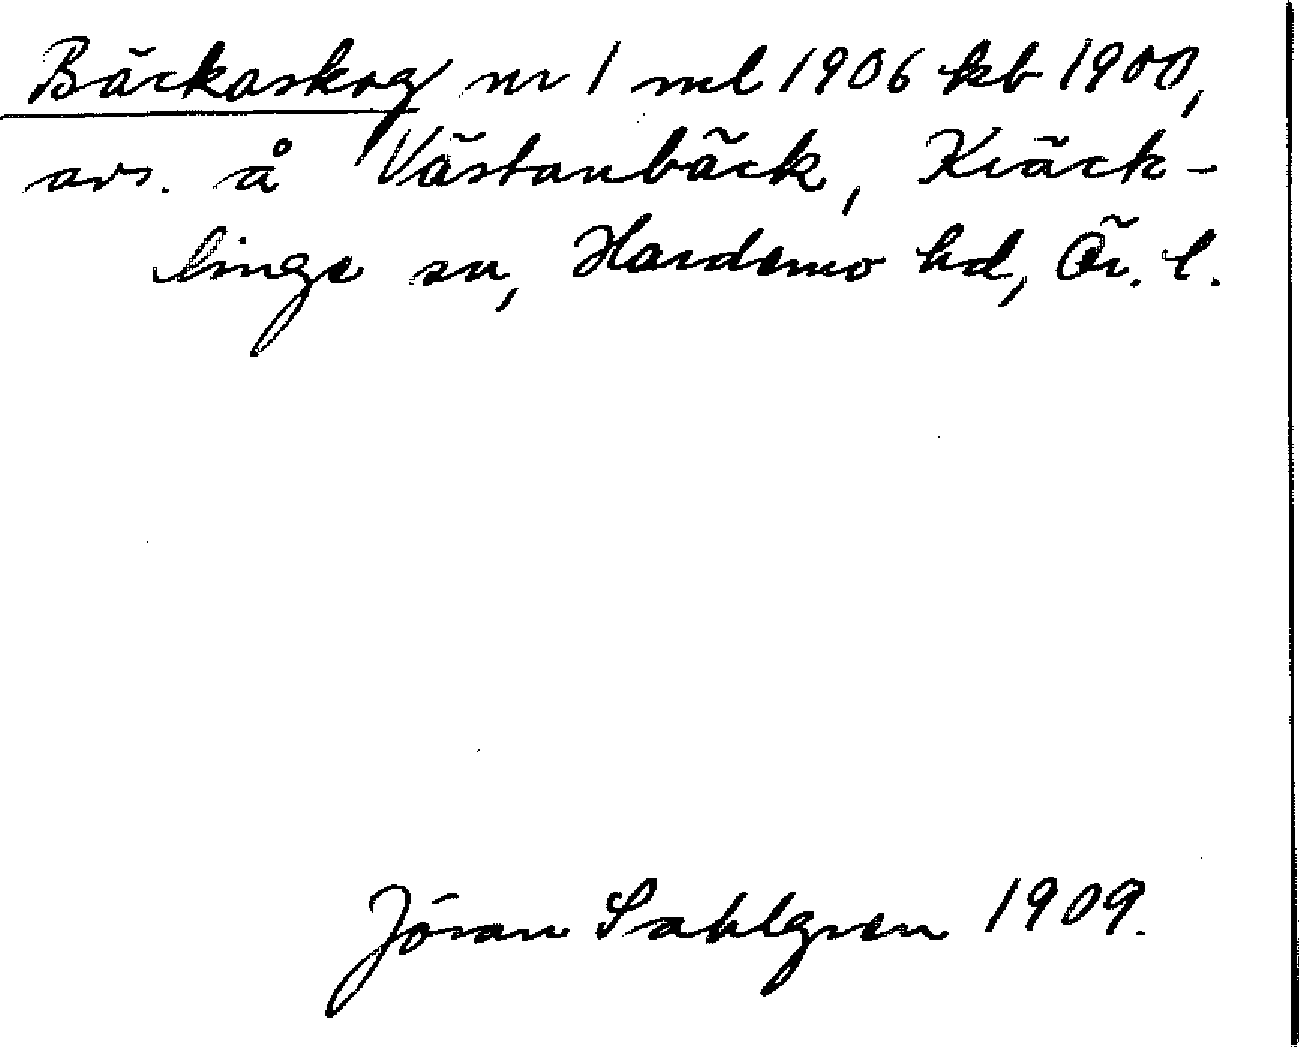 Bäckaskog nr 1 ml 1906 kb 1900,
avs. å Västanbäck, Kräck-
linge sn, Hardemo hd, Ör. l.
Jöran Sahlgren 1909.